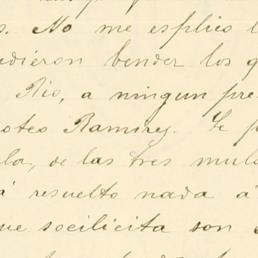 s. No me esplico l
dieron bender los q
Rio, a ningun pre
oteo Ramirez. Se p
la, de las tres mula
á resuelto nada á
ue socilicita son